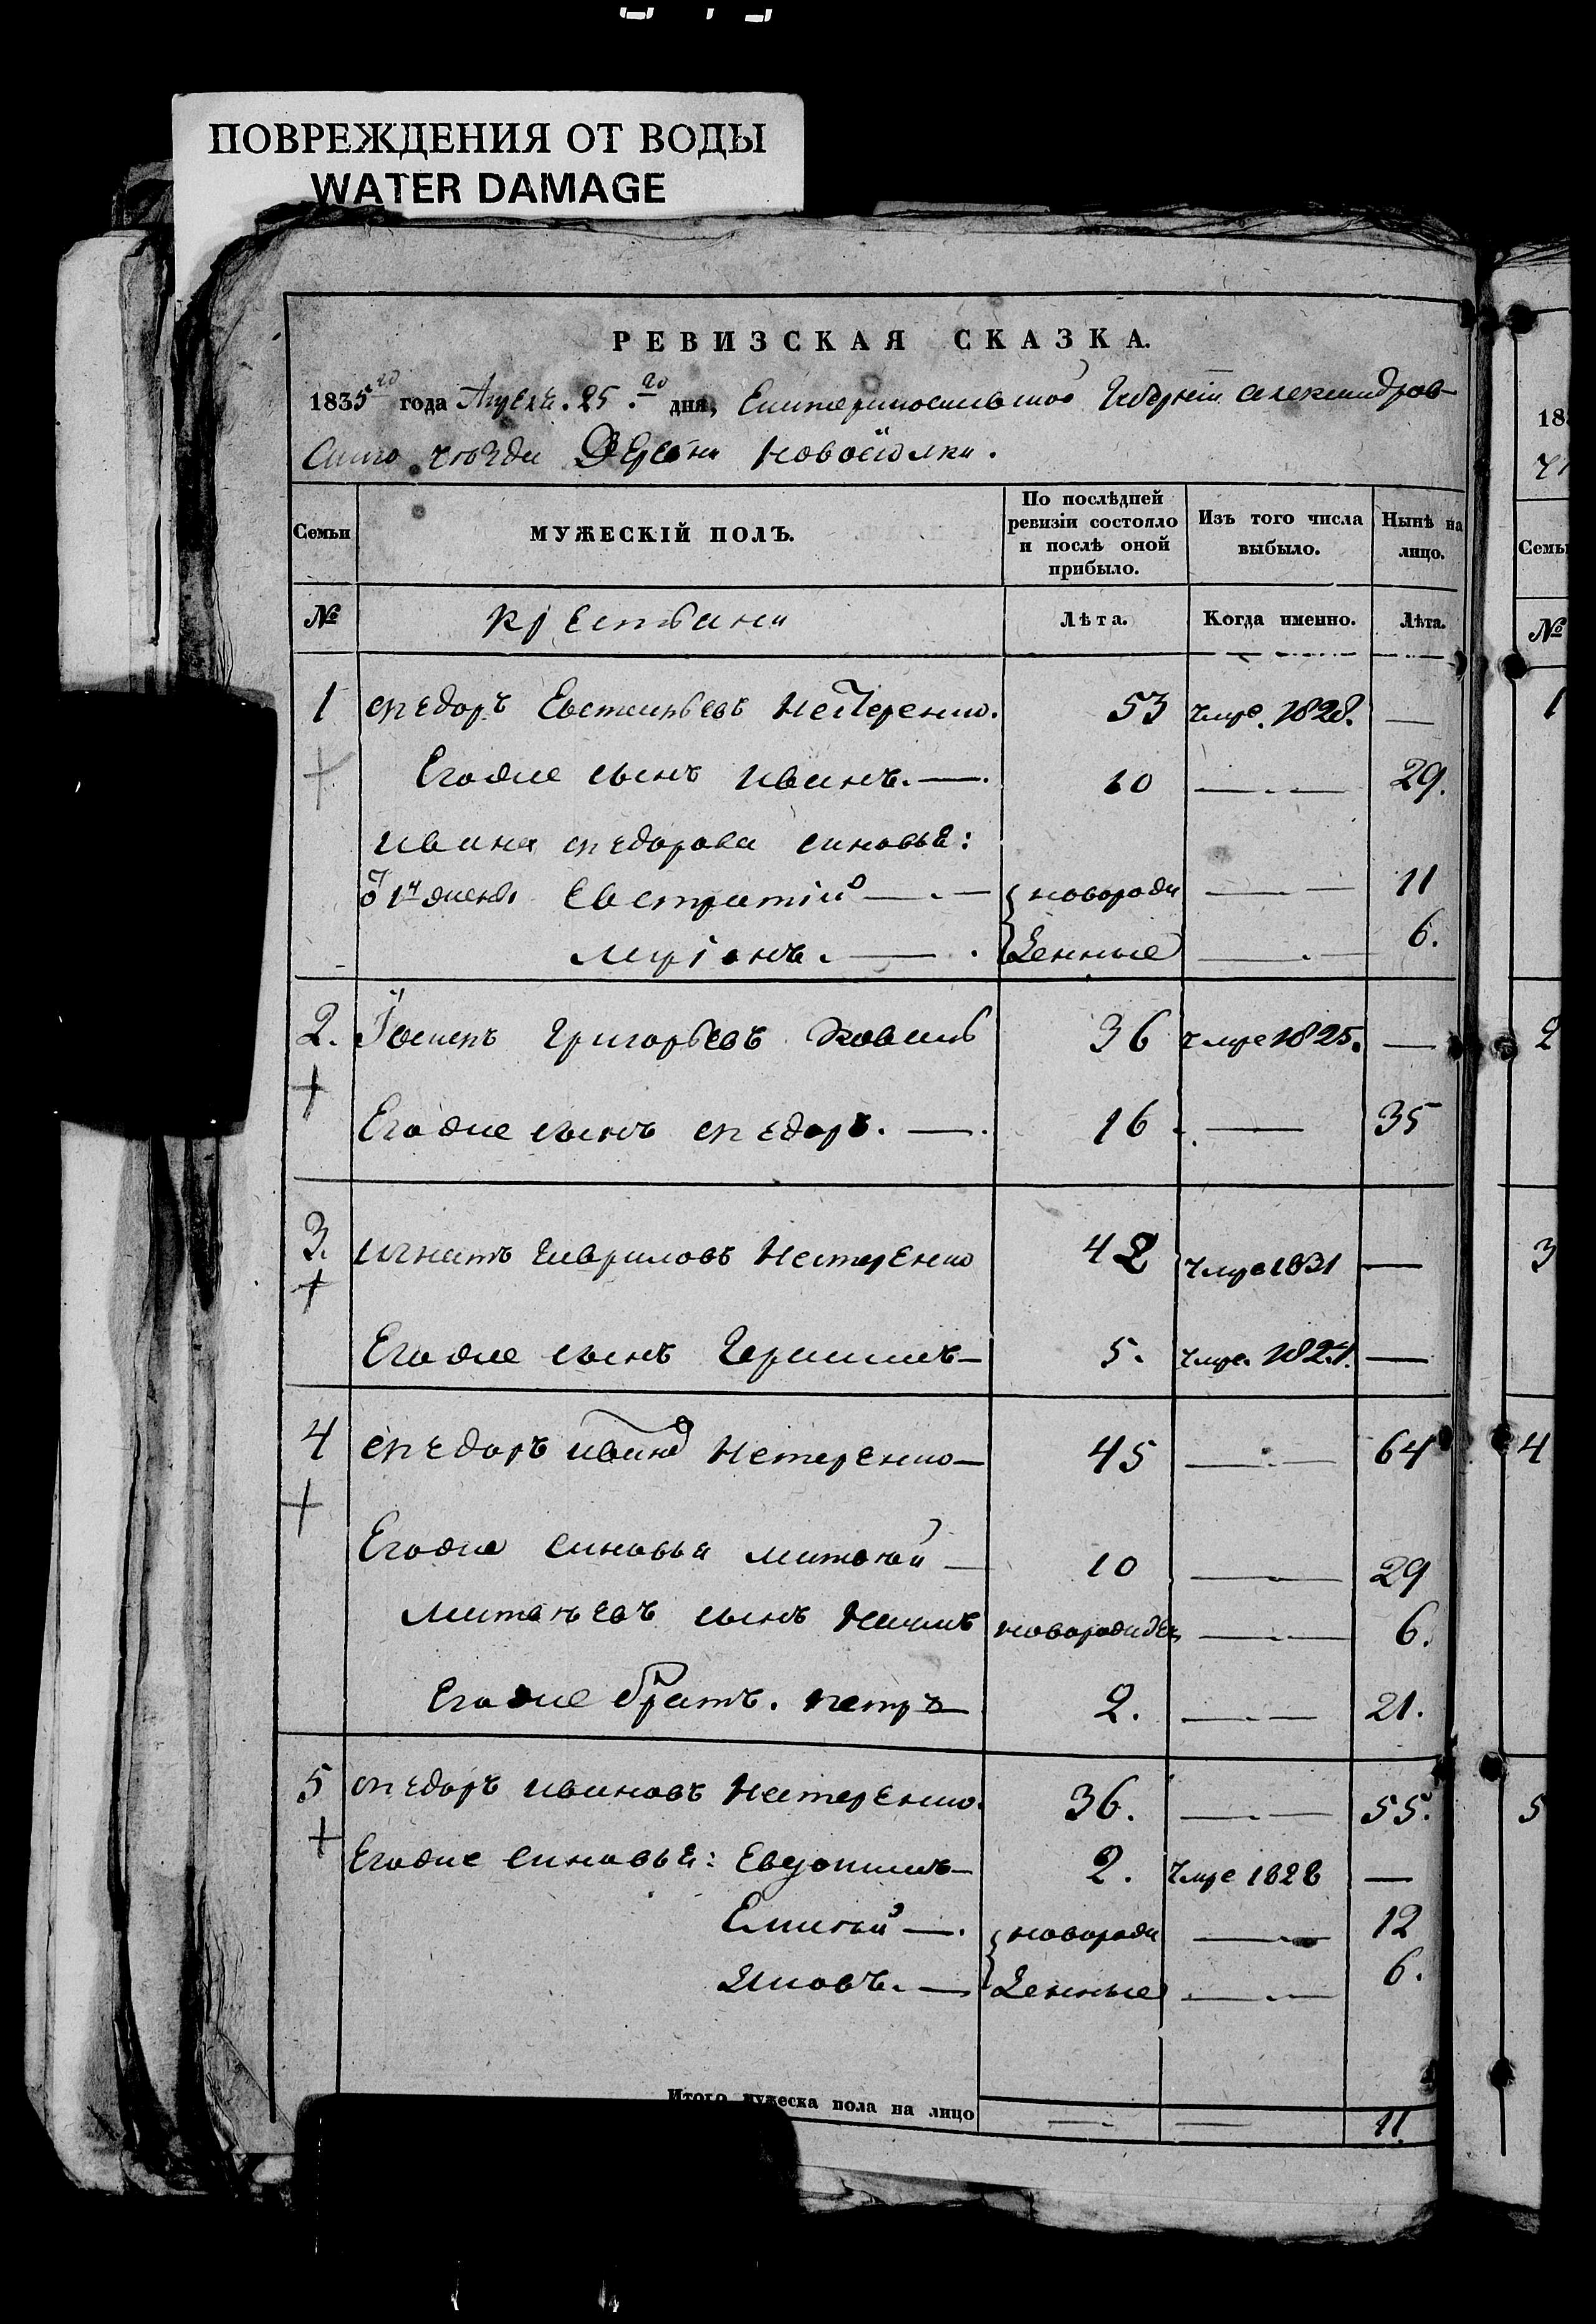 ПОВРЕЖДЕНИЯ ОТ ВОДЫ
WATER DAMAGE
РЕВИЗСКАЯ СКАЗКА.
1835го года Апреля. 25.го дня, Екатеринославской Губернии александров-
скаго уезда Деревни Новосiолки.
Семьи МУЖЕСКІЙ ПОЛЪ. По послѣдней ревизіи состояло и послѣ оной прибыло. Изъ того числа выбыло. Нынѣ на лицо.
№ крестьяни Лѣта. Когда именно. Лѣта.
1 федоръ Нестеренко. 53 умре. 1828. —
Егоже сынъ иванъ. —. 10 — 29.
ивана федорова синовья:
Евстратій — новорож 11
Миронъ. — денные — 6.
2. Григорьевъ Коваль 36 умре 1825. —
Егоже сынъ федоръ. —. 16 — 35
3. игнатъ гавриловъ Нестеренко 42 умре 1831 —
Егоже сынъ Герасимъ — 5. умре. —
4 федоръ иванов Нестеренко — 45 — 64
Егоже синовья — 10 — 29
сынъ новорожден — 6.
Егоже братъ. петръ — 2. — 21.
5 федоръ ивановъ Нестеренко. 36. — 55.
Егоже синовья: Евдокимъ — 2. умре 1828 —
—. новорож — 12
Яковъ. — денные — 6.
Итого мужеска пола на лицо — — 11
18
Семь
№
1
2
3
4
5